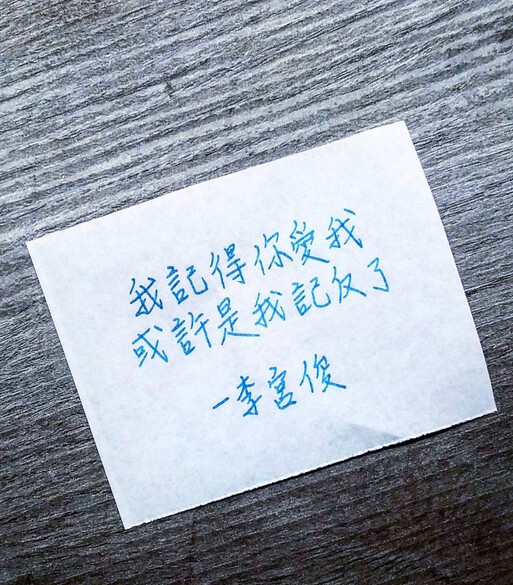 我記得你愛我
或許是我記反了
-李宮俊